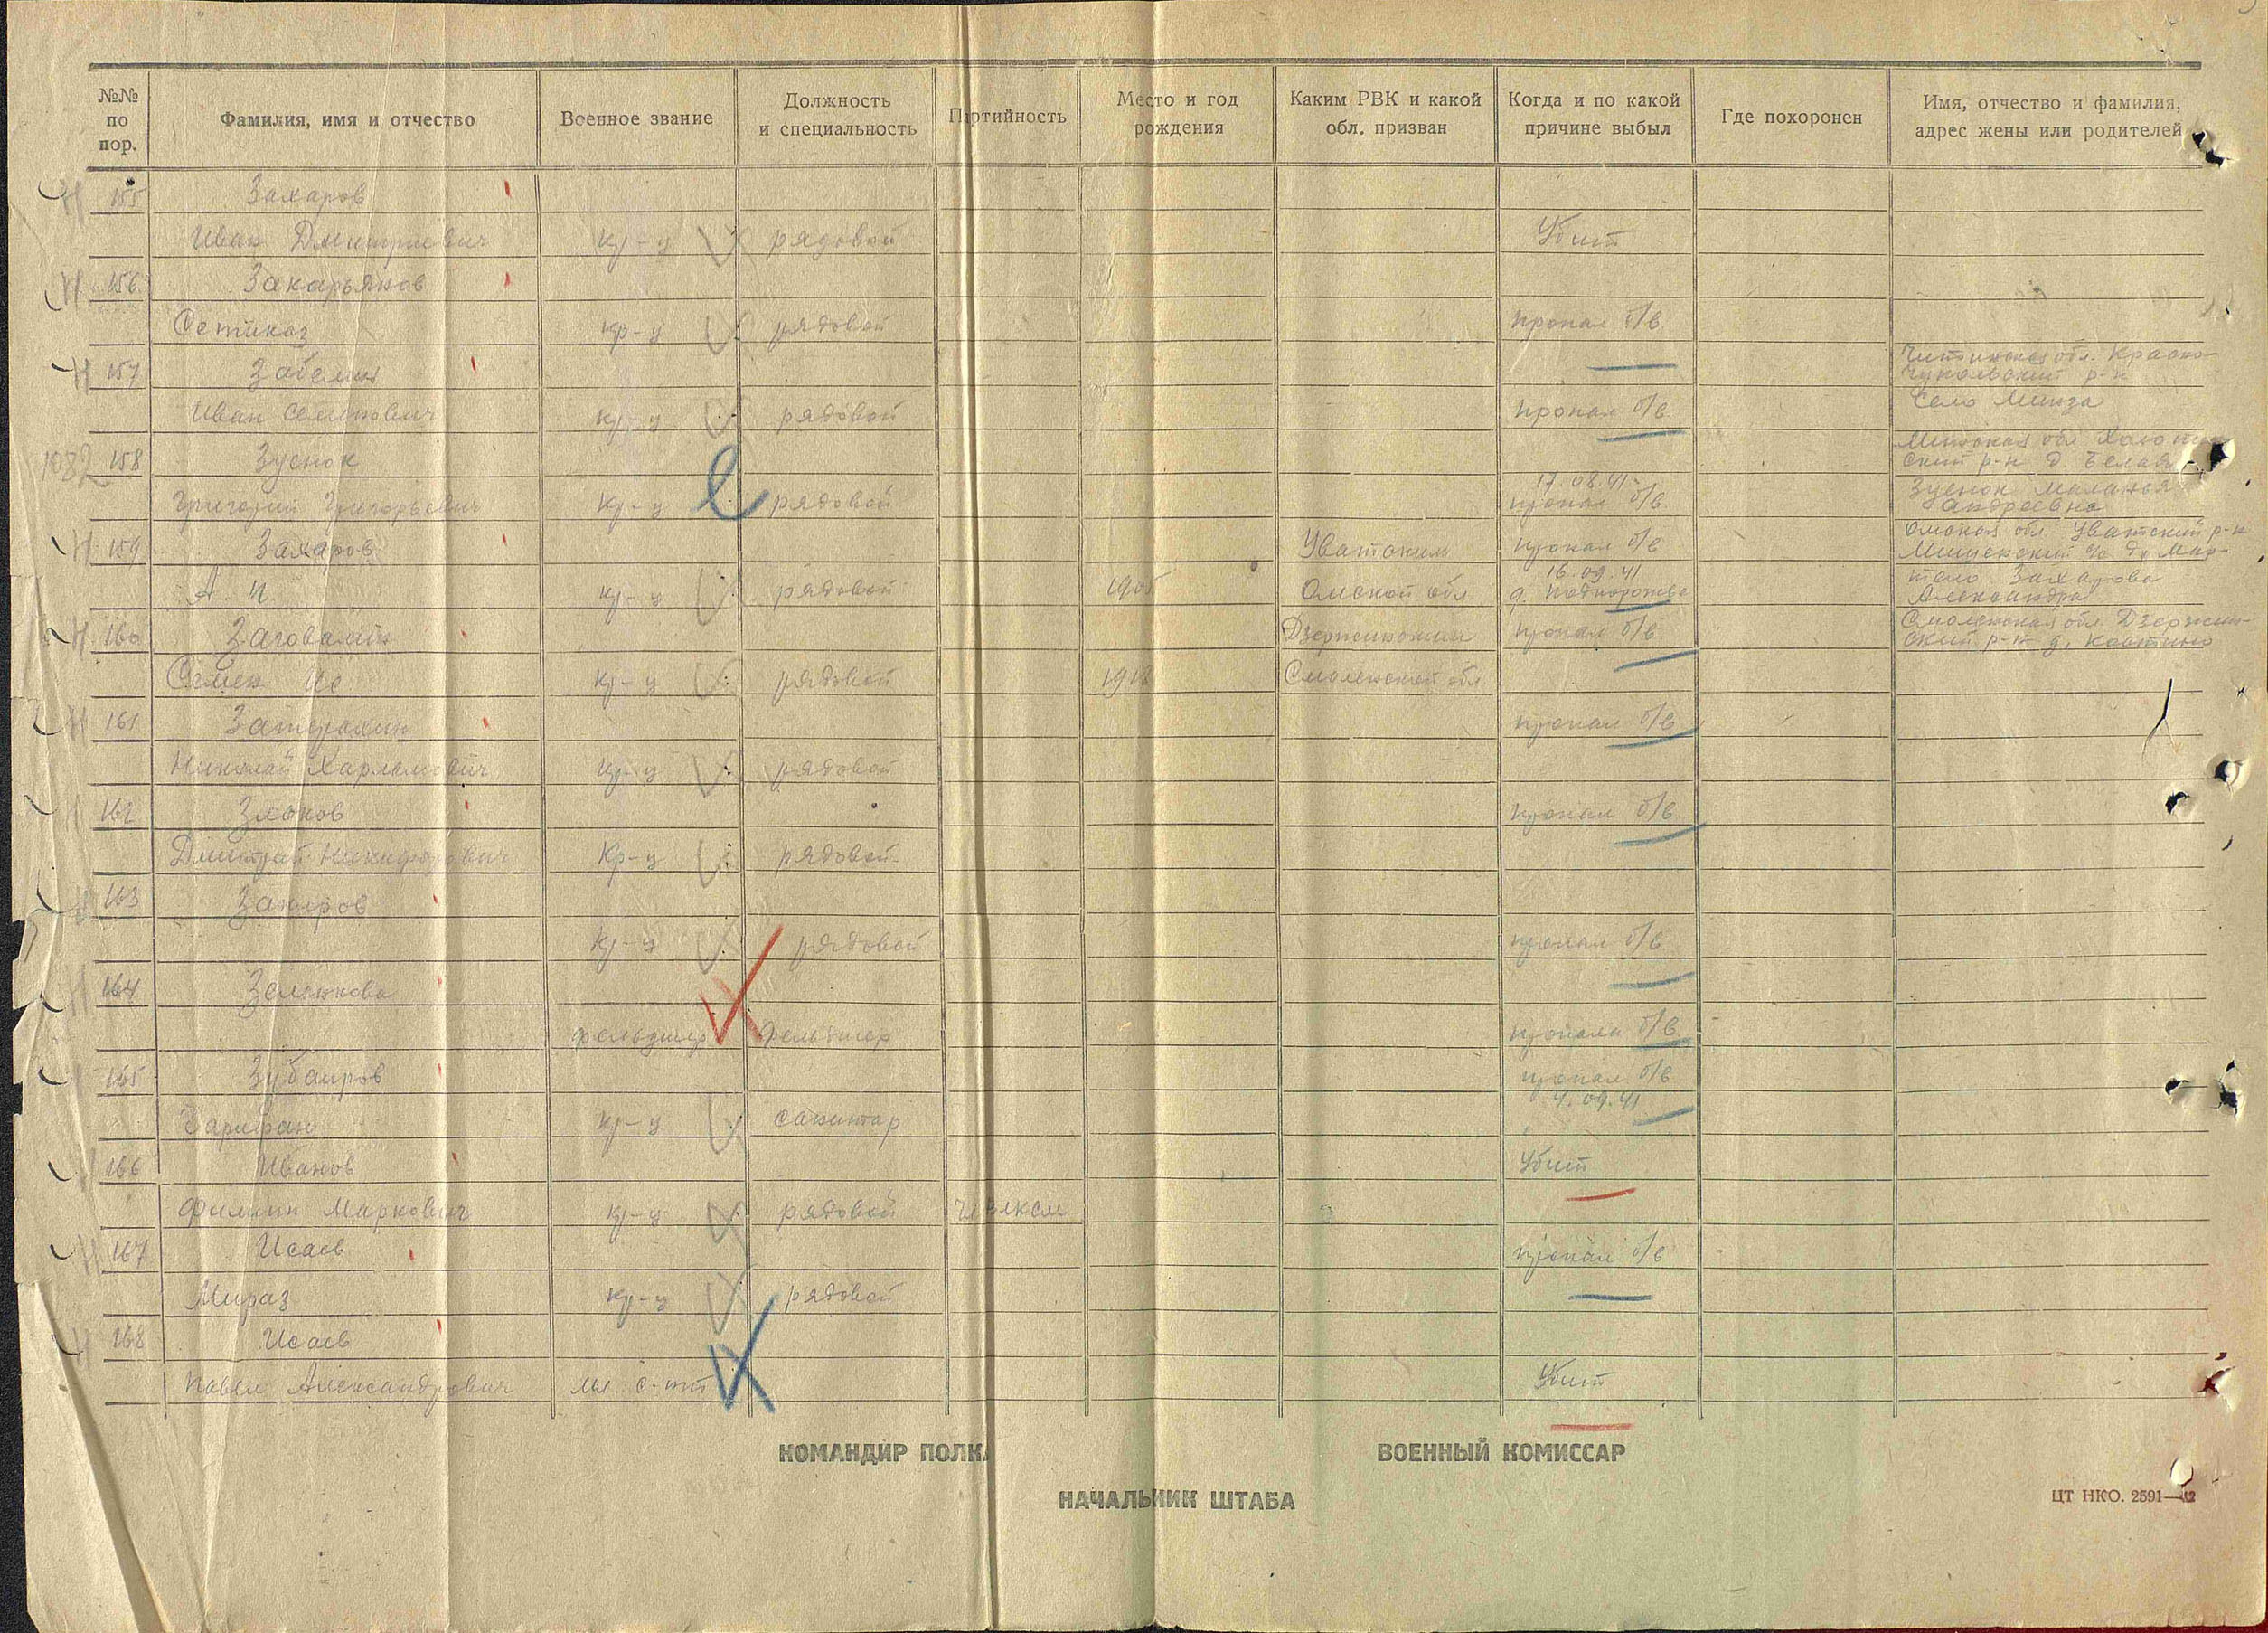 №№ по пор.
Фамилия, имя и отчество
Военное звание
Должность и специальность
Партийность
Место и год рождения
Каким РВК и какой обл. призван
Когда и по какой причине выбыл
Где похоронен
Имя, отчество и фамилия, адрес жены или родителей
155 Захаров
Иван Дмитриевич кр-ц рядовой Убит
156 Закарьянов
кр-ц рядовой пропал б/в
157 Забелин Читинская обл. Красно-
чикойский р-н
Иван Семенович кр-ц рядовой пропал б/в село Менза
1082 158 Зуенок Минская обл.
ский р-н д. Белая
17.08.41
Григорий Григорьевич кр-ц рядовой пропал б/в Зуенок Маланья
Андреевна
159 Захаров Уватским пропал б/в Омская обл. Уватский р-н
16.09.41
А. И. кр-ц рядовой 1905 Омской обл д. Подпорожье Захарова
Александра
160 Дзержинским пропал б/в Смоленская обл. Дзержин-
ский р-н д.
Семен кр-ц рядовой 1918 Смоленской обл
161 Затерахин пропал б/в
Николай Харламович кр-ц рядовой
162 Зыков пропал б/в
Дмитрий Никифорович кр-ц рядовой
163 Закиров
кр-ц рядовой пропал б/в
164 Зеленкова
фельдшер фельдшер пропала б/в
165 Зубаиров пропал б/в
4.09.41
кр-ц санитар
166 Иванов Убит
Филипп Маркович кр-ц рядовой чл ВЛКСМ
167 Исаев пропал б/в
Мираз кр-ц рядовой
168 Исаев
Павел Александрович мл. с-нт Убит
КОМАНДИР ПОЛКА
ВОЕННЫЙ КОМИССАР
НАЧАЛЬНИК ШТАБА
ЦТ НКО. 2591—42